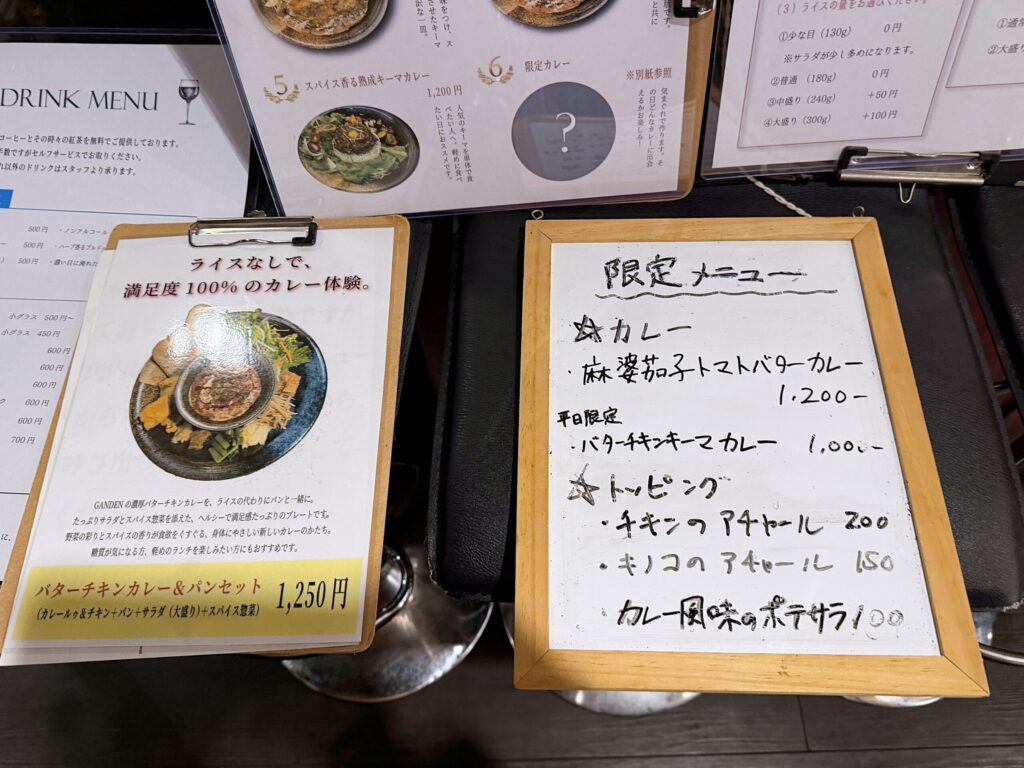 DRINK MENU
コーヒーとその時々の紅茶を無料でご提供しております。
手数ですがセルフサービスでお取りください。
れ以外のドリンクはスタッフより承ります。
500円 ・ノンアルコール
500円 ・ハーブ香る
500円 ・濃い目に淹れた
小グラス 500円～
小グラス 450円
600円
600円
600円
600円
700円
5 スパイス香る熟成キーマカレー
1,200円
人気のキーマを単体で食
べたい人へ。軽めに食べ
たい日におススメです。
6 限定カレー
※別紙参照
?
気まぐれで作ります。そ
の日どんなカレーに出会
えるかお楽しみ!
(3) ライスの量をお選びください。
①少な目 (130g) 0円
※サラダが少し多めになります。
②普通 (180g) 0円
③中盛り (240g) +50円
④大盛り (300g) +100円
ライスなしで、
満足度100%のカレー体験。
GANDENの濃厚バターチキンカレーを、ライスの代わりにパンと一緒に。
たっぷりサラダとスパイス惣菜を添えた、ヘルシーで満足感たっぷりのプレートです。
野菜の彩りとスパイスの香りが食欲をすくぐる、身体にやさしい新しいカレーのかたち。
糖質が気になる方、軽めのランチを楽しみたい方にもおすすめです。
バターチキンカレー&パンセット 1,250円
(カレールゥ&チキン+パン+サラダ(大盛り)+スパイス惣菜)
限定メニュー
☆カレー
・麻婆茄子トマトバターカレー
1,200-
平日限定
・バターチキンキーマカレー 1,000-
☆トッピング
・チキンのアチャール 200
・キノコのアチャール 150
カレー風味のポテサラ 100